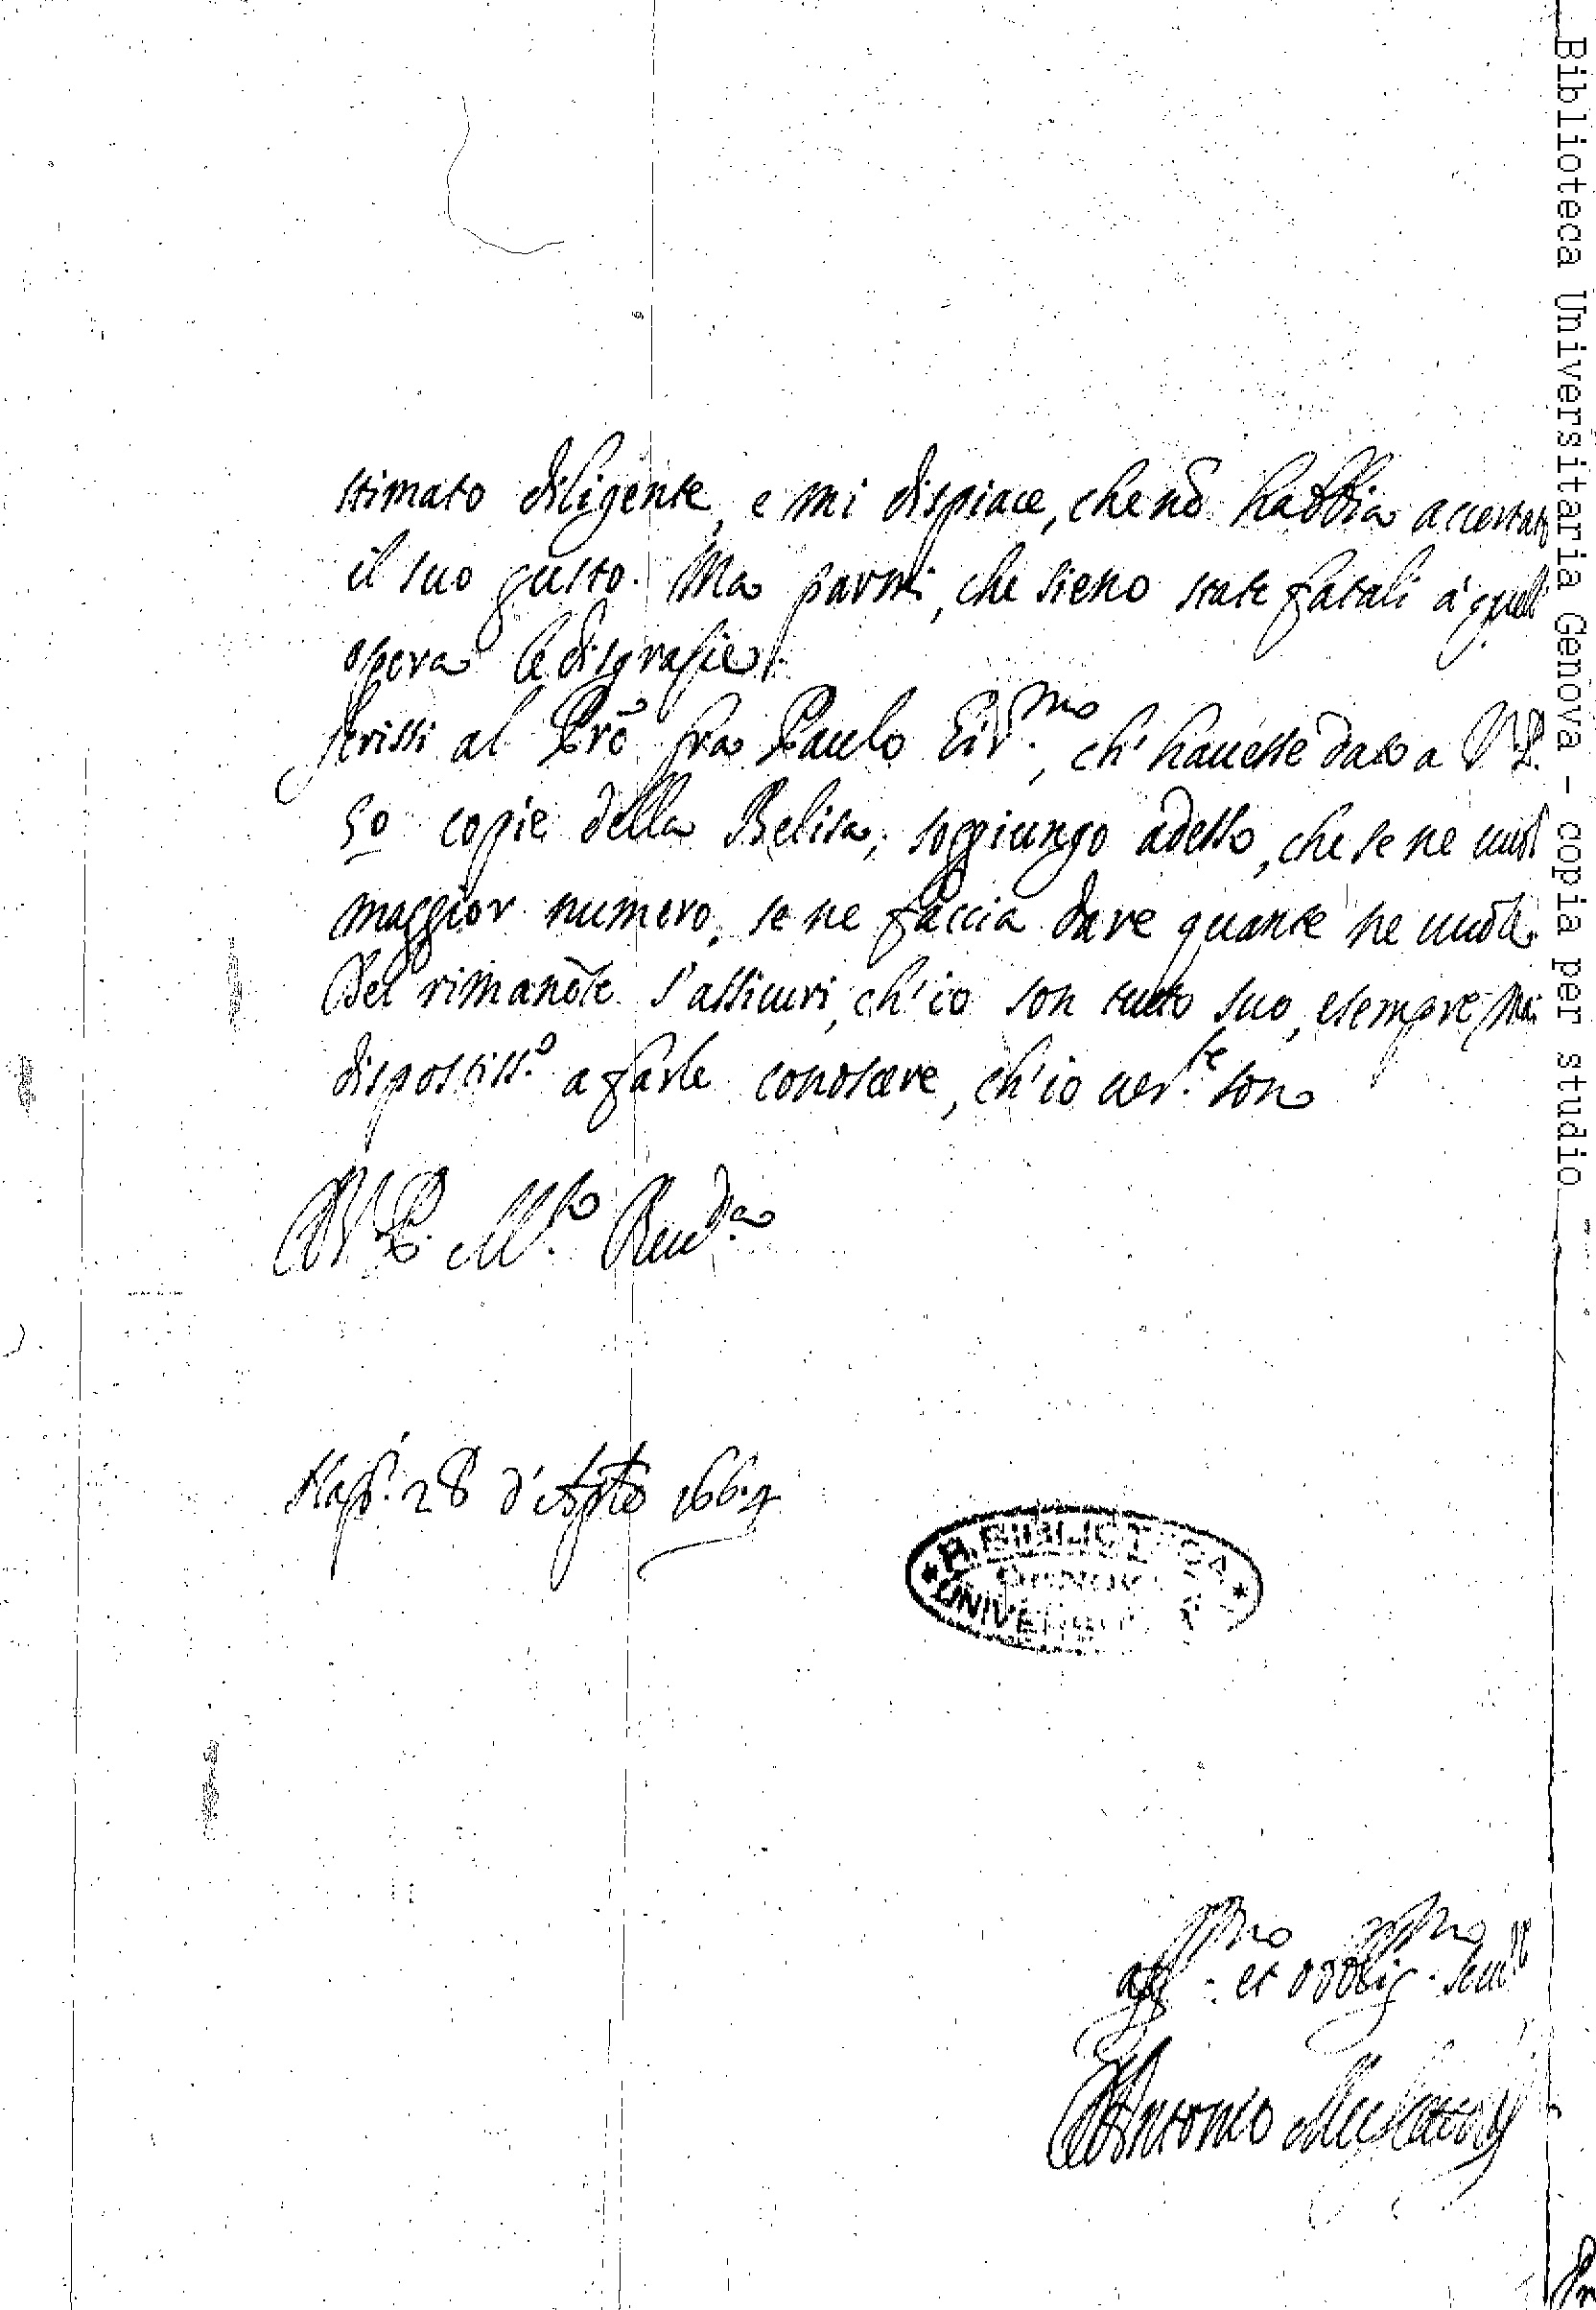 stimato diligente, e mi dispiace, che nõ habbia accertato
il suo gusto. Ma parmi, che sieno state fatali à quell
opera le disgrazie.
Scrissi al Prẽ fra Paulo ch' hauesse dato a V. P.
50 copie della Belisa; soggiungo adesso, che se ne uuol
maggior numero, se ne faccia dare quante ne uuole.
Del rimanẽte s'assicuri, ch'io son tutto suo, e sempre mai
dispostiss.º a farle conoscere, ch'io uer.te sono
Di V. P. M.to Reud.a
Nap. 28 d'Agto 1664
R. BIBLIOTECA
GENOVA
UNIVERSIT
aff.mo et obblig.mo
Antonio Muscettola
Biblioteca Universitaria Genova - copia per studio